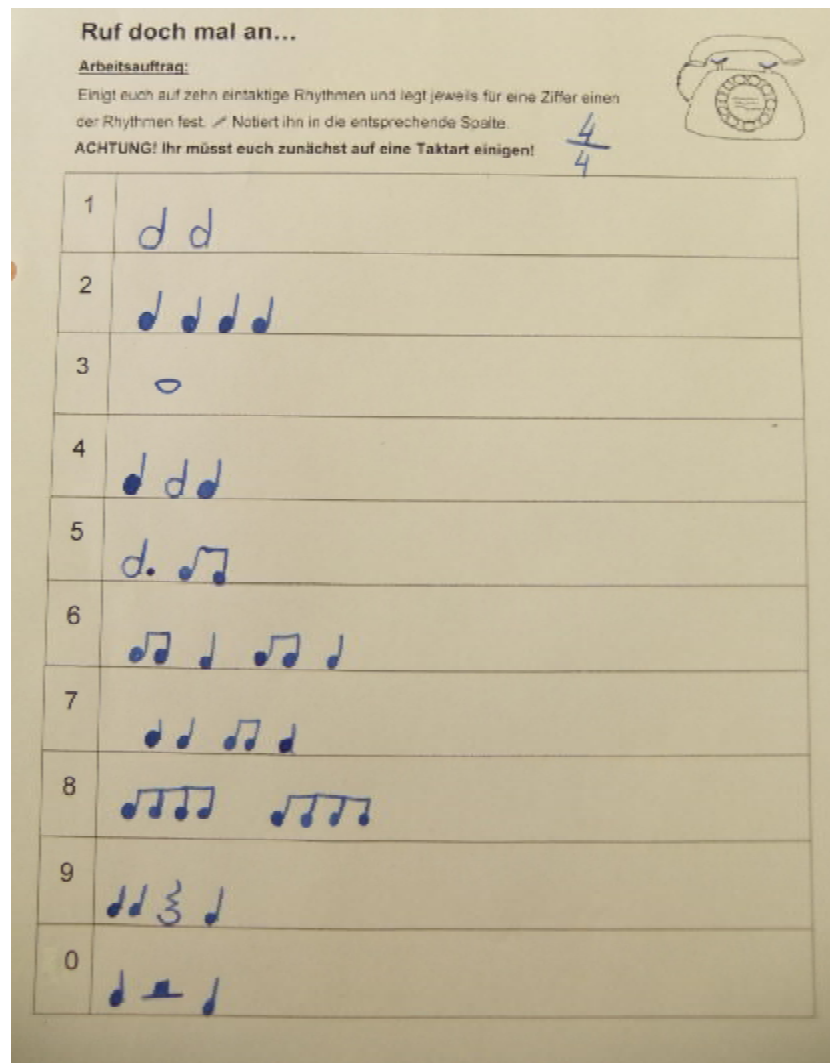 Ruf doch mal an...
Arbeitsauftrag:
Einigt euch auf zehn eintaktige Rhythmen und legt jeweils für eine Ziffer einen
der Rhythmen fest. Notiert ihn in die entsprechende Spalte.
ACHTUNG! Ihr müsst euch zunächst auf eine Taktart einigen!
4
4
1
2
3
4
5
6
7
8
9
0